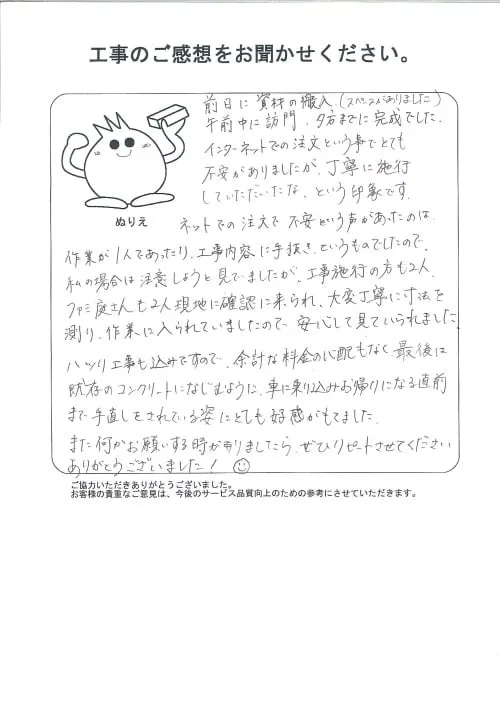 工事のご感想をお聞かせください。
前日に資材の搬入(スペースがありました)
午前中に訪問、夕方までに完成でした。
インターネットでの注文という事でとても
不安がありましたが、丁寧に施行
していただいたな、という印象です。
ぬりえ
ネットでの注文で不安という声があったのは、
作業が1人であったり、工事内容に手抜き、というものでしたので、
私の場合は注意しようと見てましたが、工事施行の方も2人、
ファミ庭さんも2人現地に確認に来られ、大変丁寧に寸法を
測り、作業に入られていましたので安心して見ていられました。
ハツリ工事も込みですので、余計な料金の心配もなく最後に
既存のコンクリートになじむように、車に乗り込みお帰りになる直前
まで手直しをされている姿にとても好感がもてました。
また何かお願いする時がありましたら、ぜひリピートさせてください
ありがとうございました!
ご協力いただきありがとうございました。
お客様の貴重なご意見は、今後のサービス品質向上のための参考にさせていただきます。